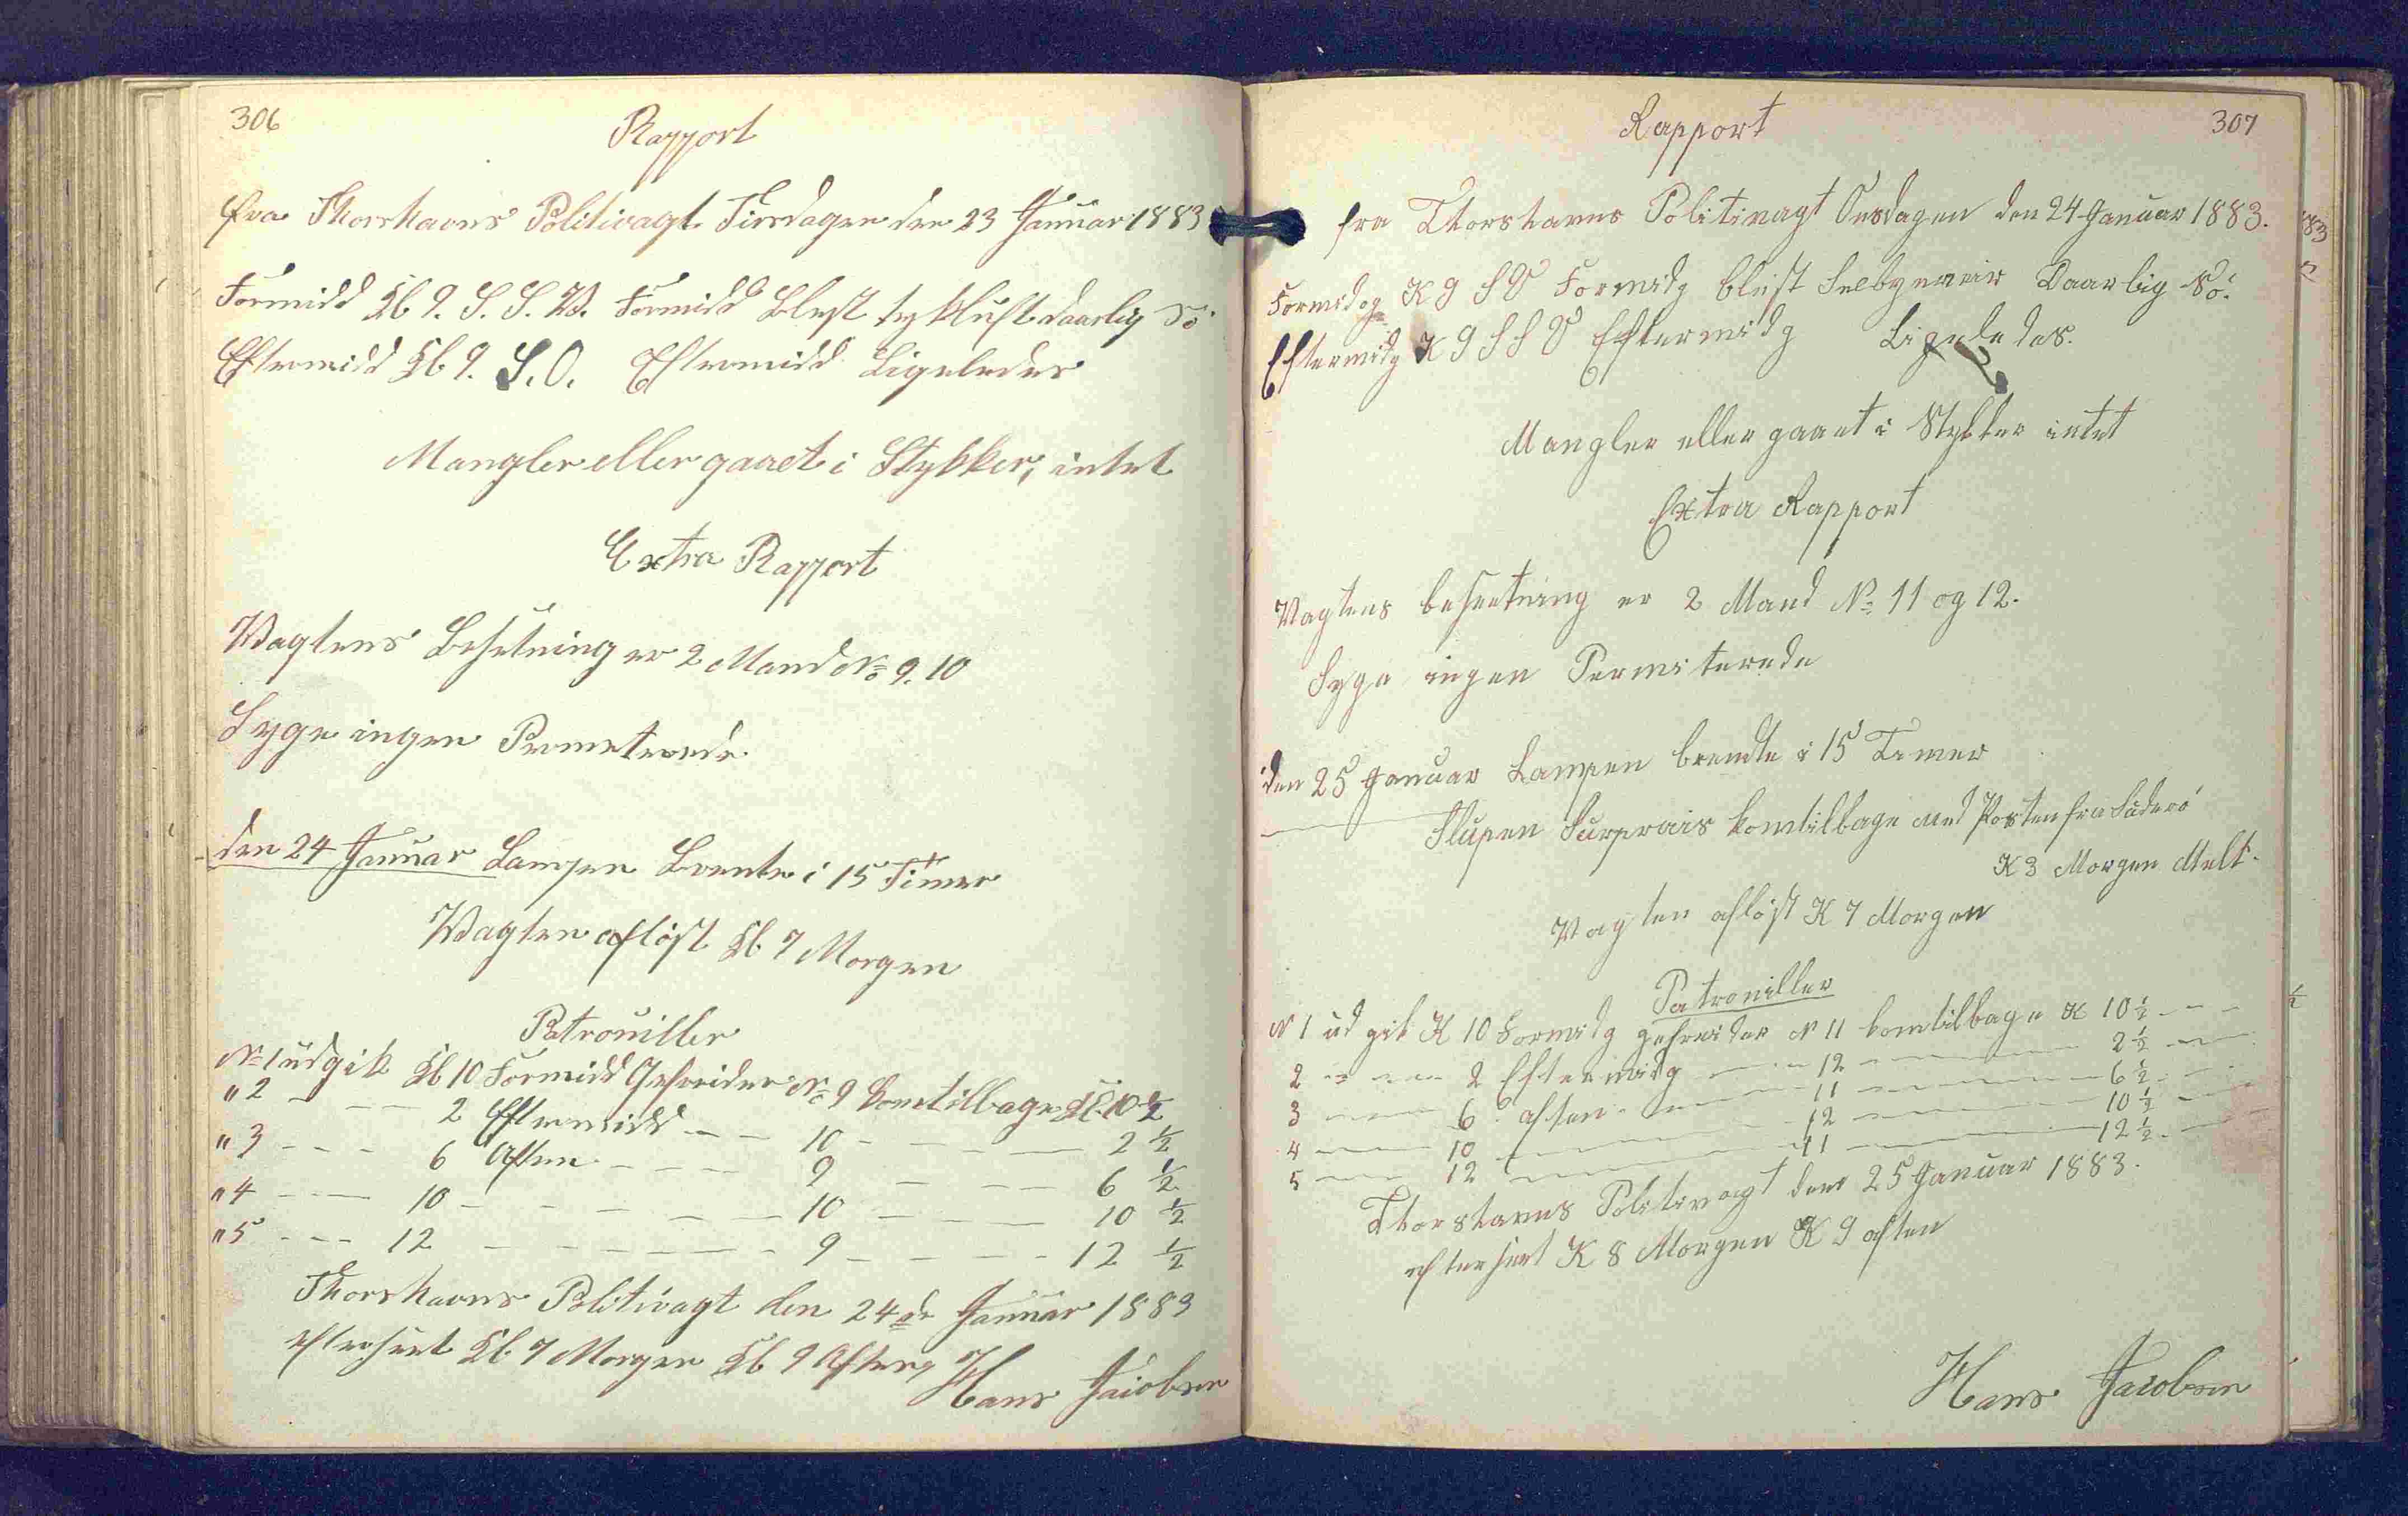 306
Rapport
fra Thorshavns Politivagt Tirsdagen den 23 Januar 1883
Formidd Kl 9. S. S. V. Formidd Blest tykluft daarlig Sö
Eftermidd Kl 9. S.O. Eftermidd Ligeledes
Mangler eller gaaet i Stykker, intet
Extra Rapport
Vagtens Besetning er 2 Mand No 9. 10
Syge ingen Permeterede
den 24 Januar Lampen Brente i 15 Timer
Vagten aflöst Kl 7 Morgen
Patrouiller
No 1 üdgik Kl 10 Formidd Gefreider No 9 komtilbage Kl 10 ½
" 2 - - - 2 Eftermidd - - 10 - - - 2 ½
" 3 - - - 6 Aften - - - 9 - - - 6 ½
" 4 - - - 10 - - - - - 10 - - - 10 ½
" 5 - - - 12 - - - - - 9 - - - 12 ½
Thorshavns Politivagt den 24de Januar 1883
efterseet Kl 7 Morgen Kl 9 Aften
Hans Jacobsen
Rapport
307
fra Thorshavns Politivagt Onsdagen den 24 Januar 1883.
Formidg K 9 S V Formidg blest Daarlig Sö.
Eftermidg K 9 S S V Eftermidg Ligeledes.
Mangler eller gaaet i Stykker intet
Extra Rapport
Vagtens besetning er 2 Mand No 11 og 12.
Syge ingen Permiterede
den 25 Januar Lampen brendte i 15 Timer
Slupen Surprais komtilbage med Posten fra Süderö
K 3 Morgen Melt.
Vagten aflöst K 7 Morgen
Patrouiller
N 1 ud gik K 10 Formidg gefreider N 11 komtilbage K 10 ½ - - -
2 - - - 2 Eftermidg - - - 12 - - - 2 ½ - -
3 - - - 6 aften - - - 11 - - - 6 ½ - -
4 - - - 10 - - - 12 - - - 10 ½ - -
5 - - - 12 - - - 11 - - - 12 ½ - -
Thorshavns Politivagt den 25 Januar 1883.
efterseet K 8 Morgen K 9 aften
Hans Jacobsen